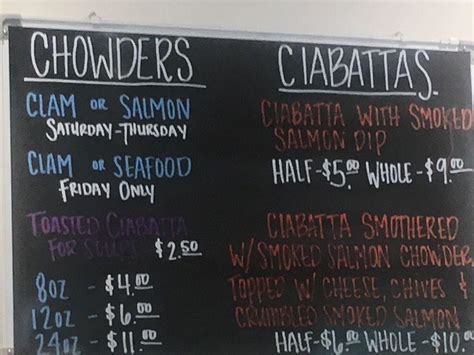 CHOWDERS
CLAM OR SALMON
SATURDAY-THURSDAY
CLAM OR SEAFOOD
FRIDAY ONLY
TOASTED CIABATTA
FOR $2.50
8OZ - $4.00
12OZ - $6.00
24OZ - $11.00
CIABATTAS
CIABATTA WITH SMOKED
SALMON DIP
HALF-$5.00 WHOLE-$9.00
CIABATTA SMOTHERED
W/SMOKED SALMON CHOWDER,
TOPPED W/ CHEESE, CHIVES &
CRUMBLED SMOKED SALMON
HALF-$6.00 WHOLE-$10.00